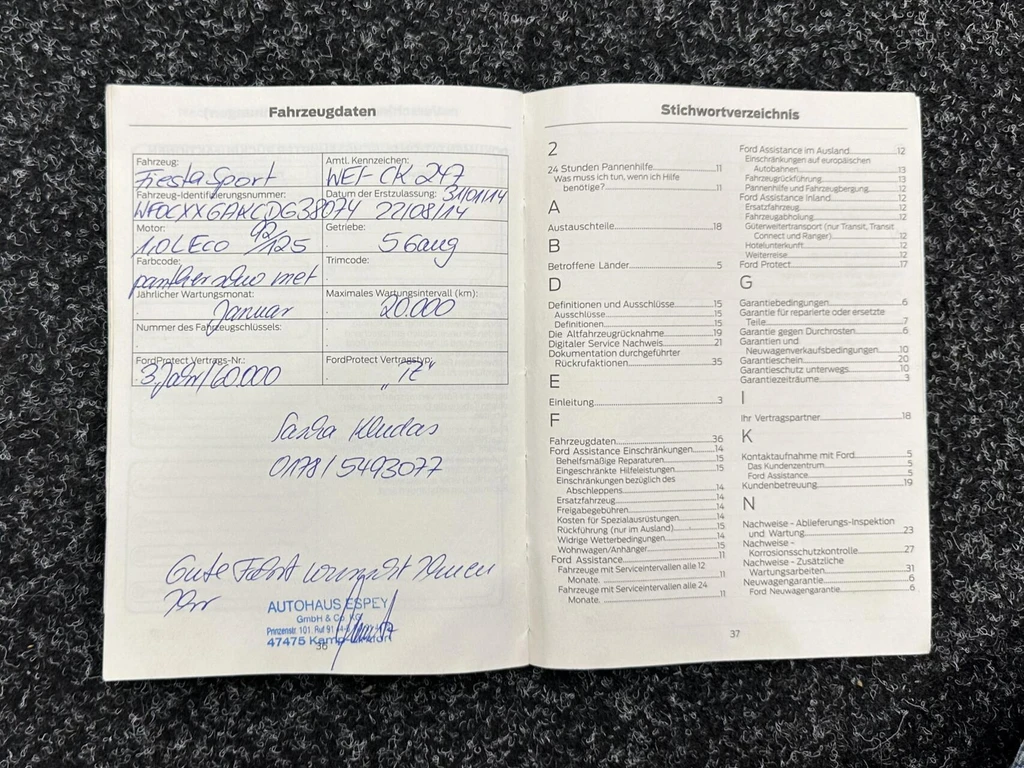 Fahrzeugdaten
Fahrzeug:
Fiesta Sport
Amtl. Kennzeichen:
WEF-CK 247
Fahrzeug-Identifizierungsnummer:
WF0CXXGAKCDG38074
Datum der Erstzulassung: 31/01/14
22/08/14
Motor:
1.0L Eco 92/125
Getriebe:
5 Gang
Farbcode:
panther met
Trimcode:
Jährlicher Wartungsmonat:
Januar
Maximales Wartungsintervall (km):
20.000
Nummer des Fahrzeugschlüssels:
FordProtect Vertrags-Nr.:
3. Jahr/60.000
FordProtect Vertragstyp:
0178/5493077
Gute Fahrt wünscht Ihnen
Ihr
AUTOHAUS ESPEY
GmbH & Co. KG
Prinzenstr. 101, Ruf 91
47475 Kamp-Lintfort
36
Stichwortverzeichnis
2
24 Stunden Pannenhilfe 11
Was muss ich tun, wenn ich Hilfe
benötige? 11
A
Austauschteile 18
B
Betroffene Länder 5
D
Definitionen und Ausschlüsse 15
Ausschlüsse 15
Definitionen 15
Die Altfahrzeugrücknahme 19
Digitaler Service Nachweis 21
Dokumentation durchgeführter
Rückrufaktionen 35
E
Einleitung 3
F
Fahrzeugdaten 36
Ford Assistance Einschränkungen 14
Behelfsmäßige Reparaturen 15
Eingeschränkte Hilfeleistungen 15
Einschränkungen bezüglich des
Abschleppens 14
Ersatzfahrzeug 14
Freigabegebühren 14
Kosten für Spezialausrüstungen 14
Rückführung (nur im Ausland) 15
Widrige Wetterbedingungen 14
Wohnwagen/Anhänger 15
Ford Assistance 11
Fahrzeuge mit Serviceintervallen alle 12
Monate. 11
Fahrzeuge mit Serviceintervallen alle 24
Monate. 11
Ford Assistance im Ausland 12
Einschränkungen auf europäischen
Autobahnen 13
Fahrzeugrückführung 13
Pannenhilfe und Fahrzeugbergung 12
Ford Assistance Inland 12
Ersatzfahrzeug 12
Fahrzeugabholung 12
Güterweitertransport (nur Transit, Transit
Connect und Ranger) 12
Hotelunterkunft 12
Weiterreise 12
Ford Protect 17
G
Garantiebedingungen 6
Garantie für reparierte oder ersetzte
Teile 7
Garantie gegen Durchrosten 6
Garantien und
Neuwagenverkaufsbedingungen 10
Garantieschein 20
Garantieschutz unterwegs 10
Garantiezeiträume 3
I
Ihr Vertragspartner 18
K
Kontaktaufnahme mit Ford 5
Das Kundenzentrum 5
Ford Assistance 5
Kundenbetreuung 19
N
Nachweise - Ablieferungs-Inspektion
und Wartung 23
Nachweise -
Korrosionsschutzkontrolle 27
Nachweise - Zusätzliche
Wartungsarbeiten 31
Neuwagengarantie 6
Ford Neuwagengarantie 6
37